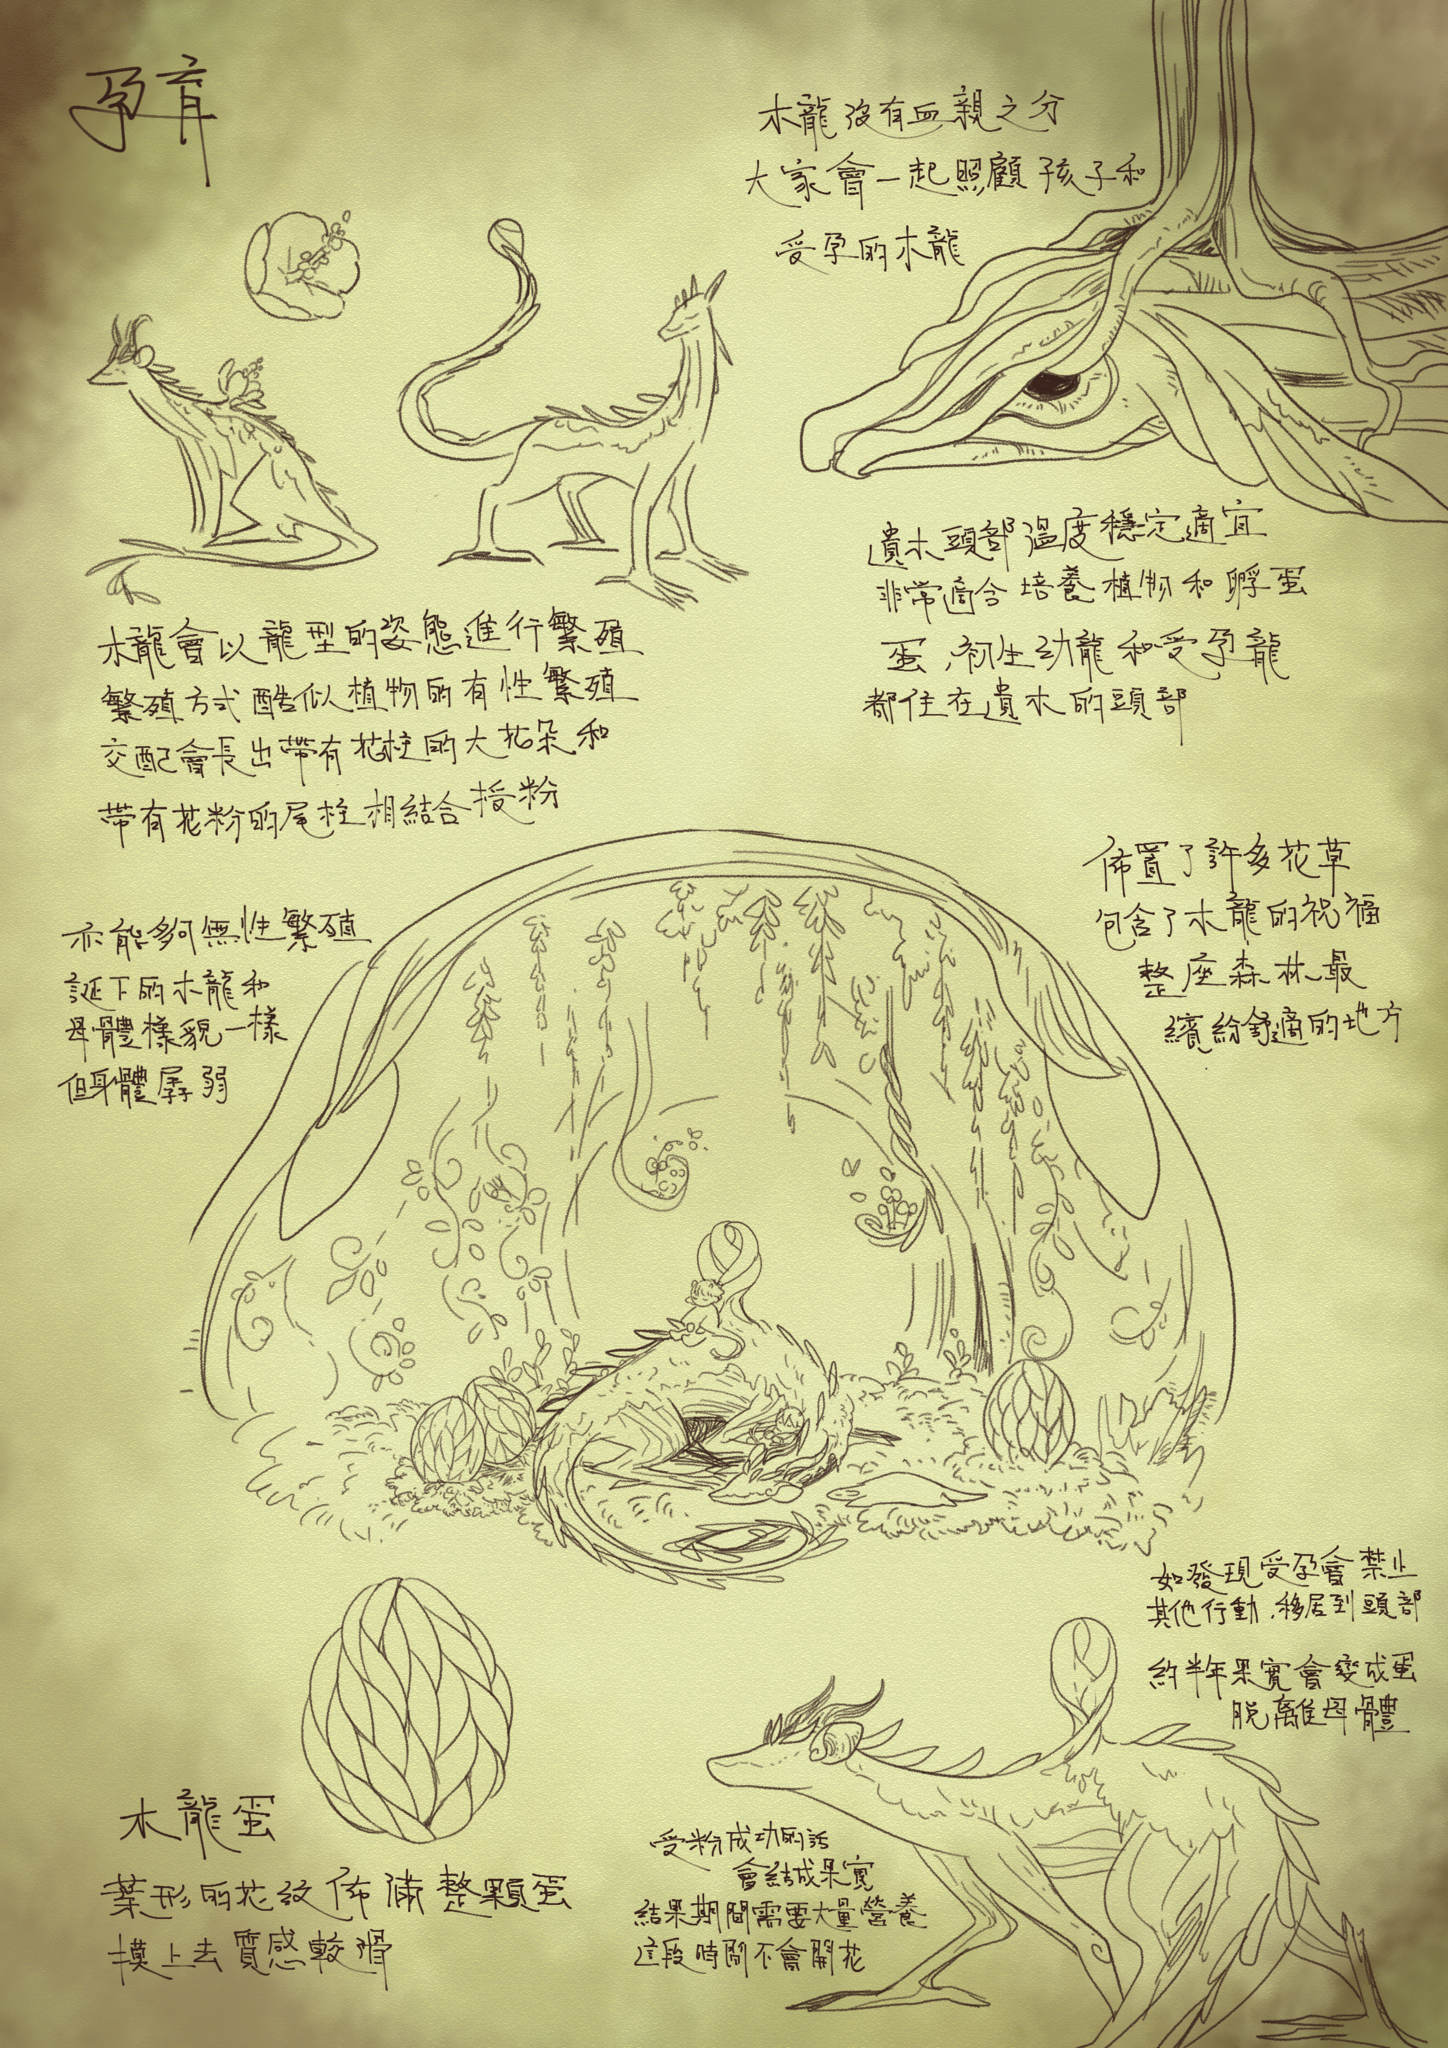 孕育
木龍沒有血親之分
大家會一起照顧孩子和
受孕的木龍
木龍會以龍型的姿態進行繁殖
繁殖方式酷似植物的有性繁殖
交配會長出帶有花柱的大花朵和
帶有花粉的尾柱相結合授粉
遺木頭部溫度穩定適宜
非常適合培養植物和孵蛋
蛋,初生幼龍和受孕龍
都住在遺木的頭部
亦能夠無性繁殖
誕下的木龍和
母體樣貌一樣
但身體孱弱
佈置了許多花草
包含了木龍的祝福
整座森林最
繽紛舒適的地方
如發現受孕會禁止
其他行動,移居到頭部
約半年果實會變成蛋
脫離母體
木龍蛋
葉形的花紋佈滿整顆蛋
摸上去質感較滑
受粉成功的話
會結成果實
結果期間需要大量營養
這段時間不會開花